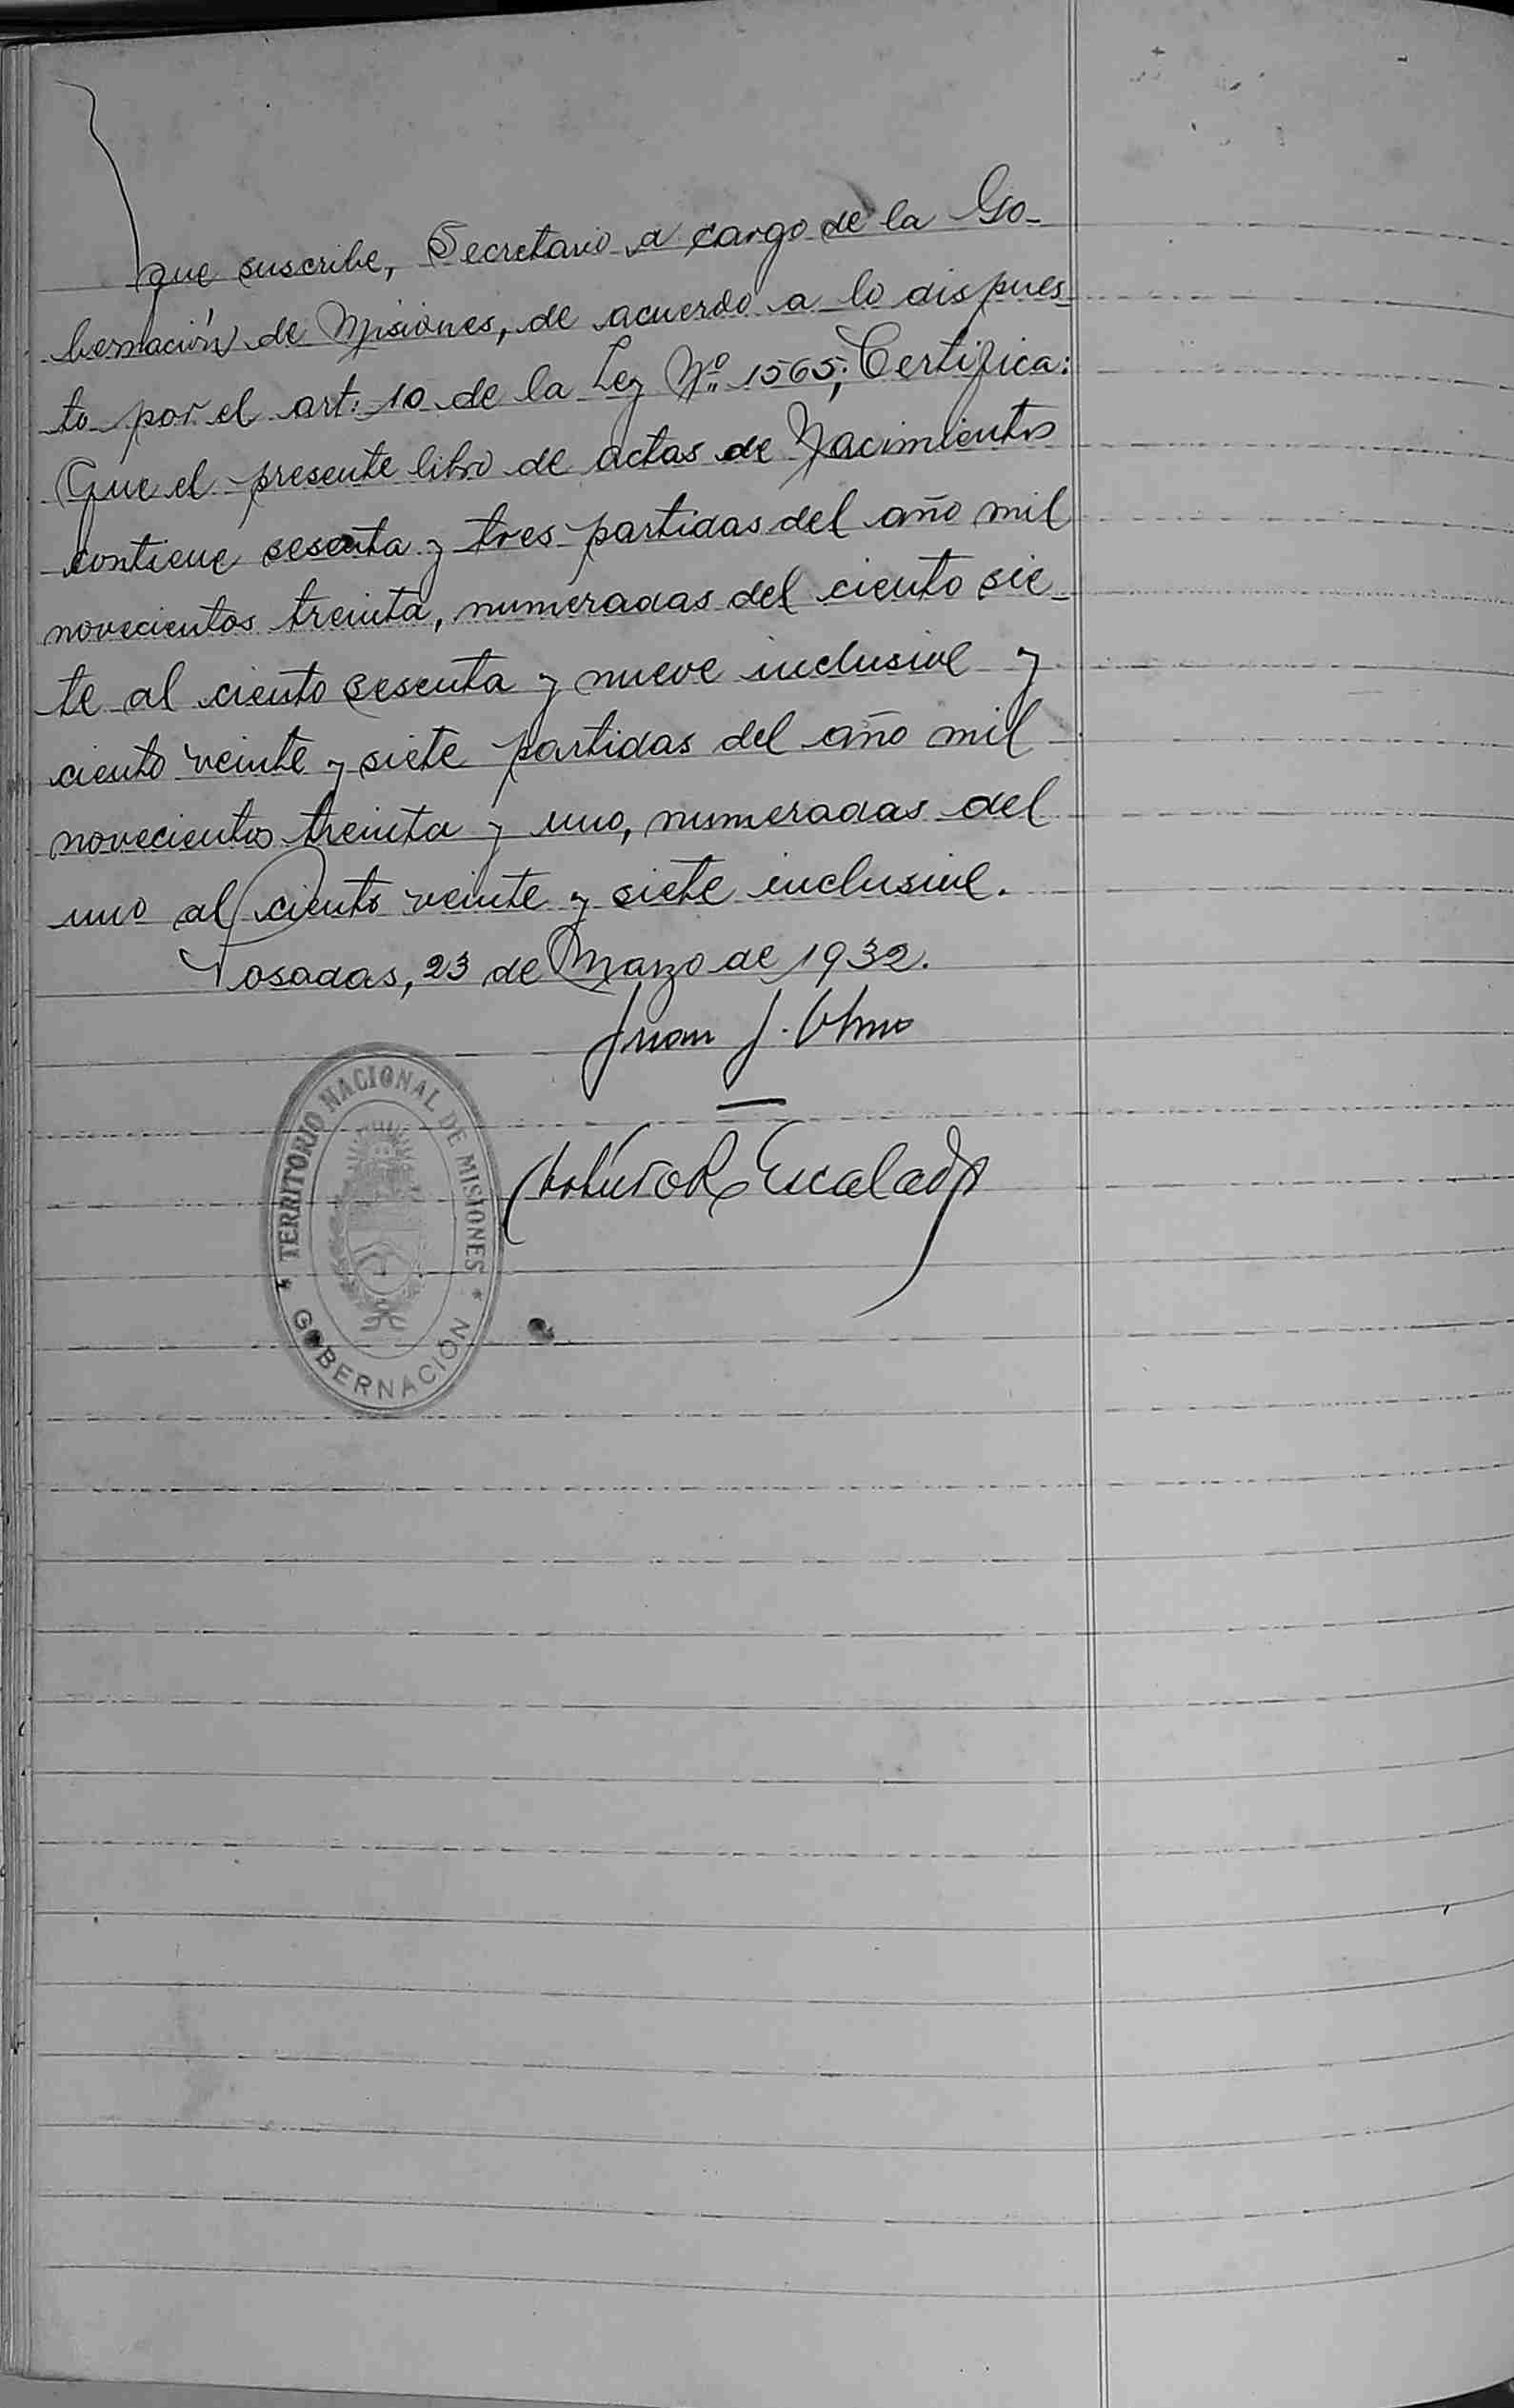 que suscribe, Secretario a cargo de la Go-
bernación de Misiones, de acuerdo a lo dispues-
to por el art. 10 de la Ley Nº 1565; Certifica:
Que el presente libro de actas de Nacimientos
contiene sesenta y tres partidas del año mil
novecientos treinta, numeradas del ciento sie-
te al ciento sesenta y nueve inclusive y
ciento veinte y siete partidas del año mil
novecientos treinta y uno, numeradas del
uno al ciento veinte y siete inclusive.
Posadas, 23 de Marzo de 1932.
Juan J.
Escalada
* TERRITORIO NACIONAL DE MISIONES *
GOBERNACIÓN